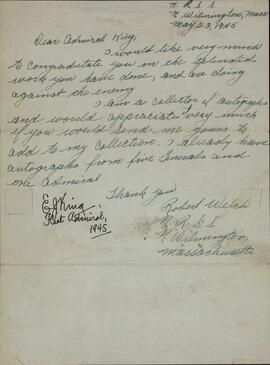 N. R. S. S
N Wilmington, Mass
May 23, 1945
Dear Admiral King,
I would like very much
to congradulate you on the splendid
work you have done, and are doing
against the enemy.
I am a collector of autographs
and would appreciate very much
if you would send me yours to
add to my collection. I already have
autographs from five Generals and
one Admiral
Thank you
Robert Welch
N. R. S. S.
N Wilmington,
Massachusetts
E J King
Fleet Admiral,
1945